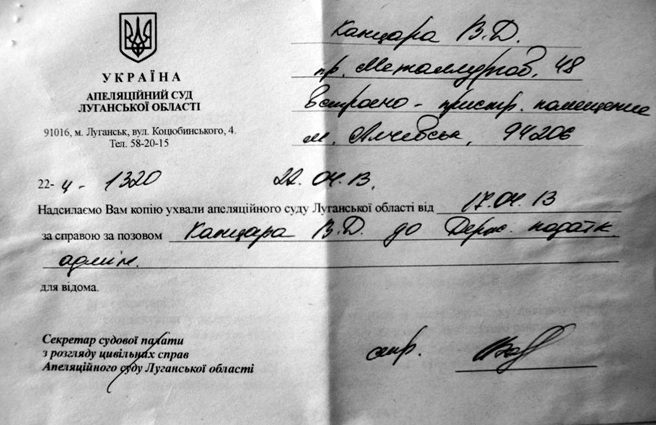 УКРАЇНА
АПЕЛЯЦІЙНИЙ СУД
ЛУГАНСЬКОЇ ОБЛАСТІ
91016, м. Луганськ, вул. Коцюбинського, 4.
Тел. 58-20-15
Канцара В.Д.
пр. Металлургов, 48
встроено-пристр. помещение
м. Алчевськ, 94206
22-ц-1320 22.04.13.
Надсилаємо Вам копію ухвали апеляційного суду Луганської області від 17.04.13
за справою за позовом Канцара В.Д. до Держ. податк.
адмін.
для відома.
Секретар судової палати
з розгляду цивільних справ
Апеляційного суду Луганської області